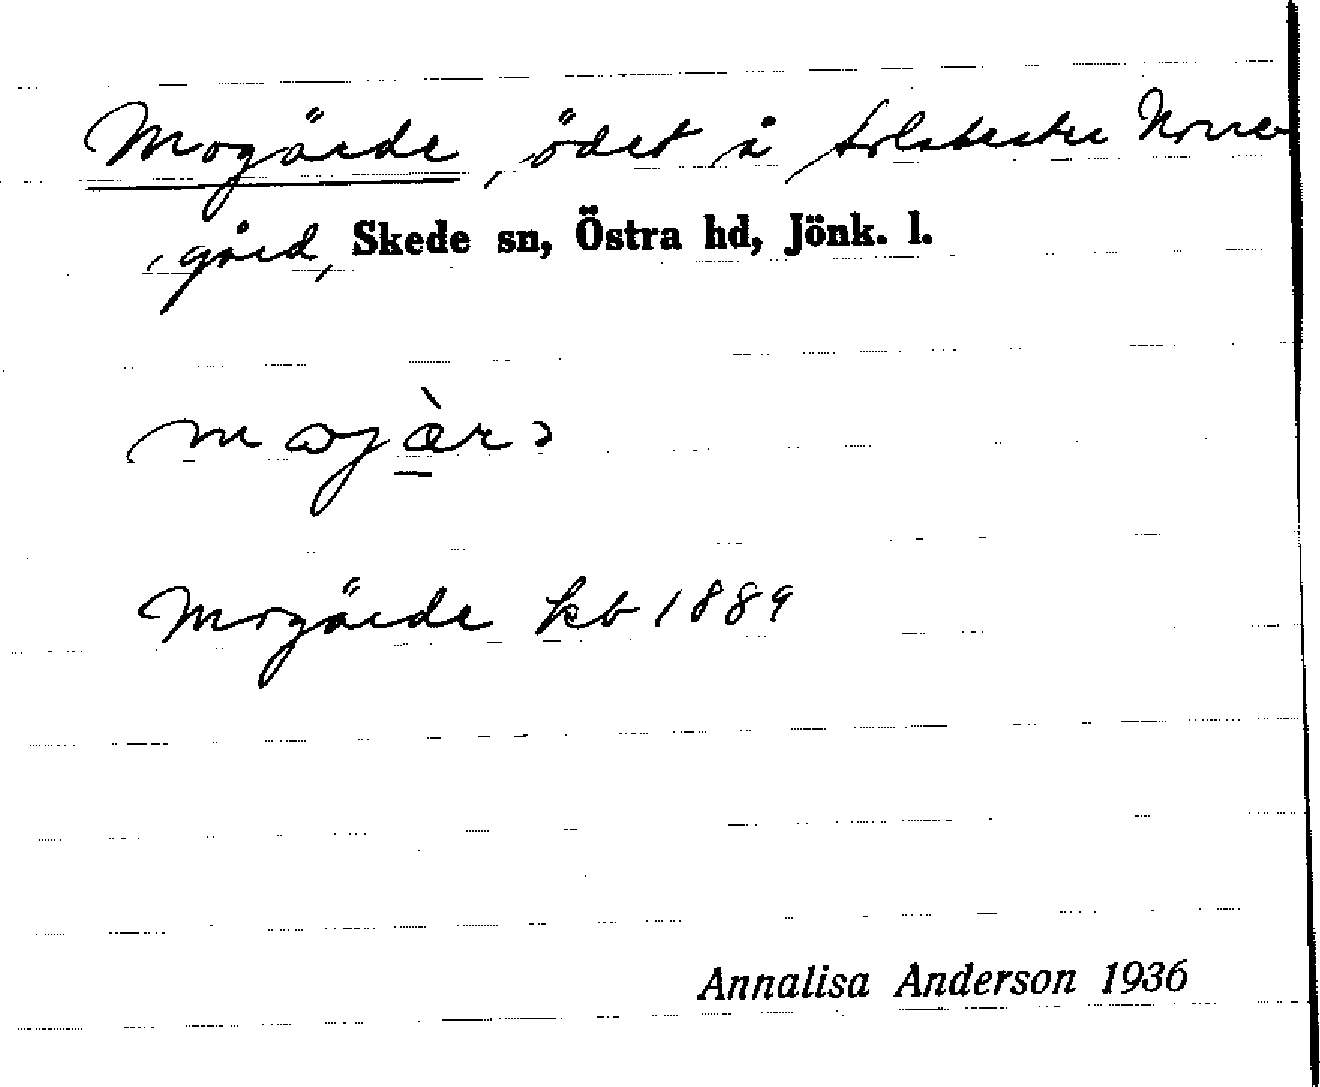 Mogärde, ödet å Norre-
gård, Skede sn, Östra hd, Jönk. l.
Mogärde kb 1889
Annalisa Anderson 1936